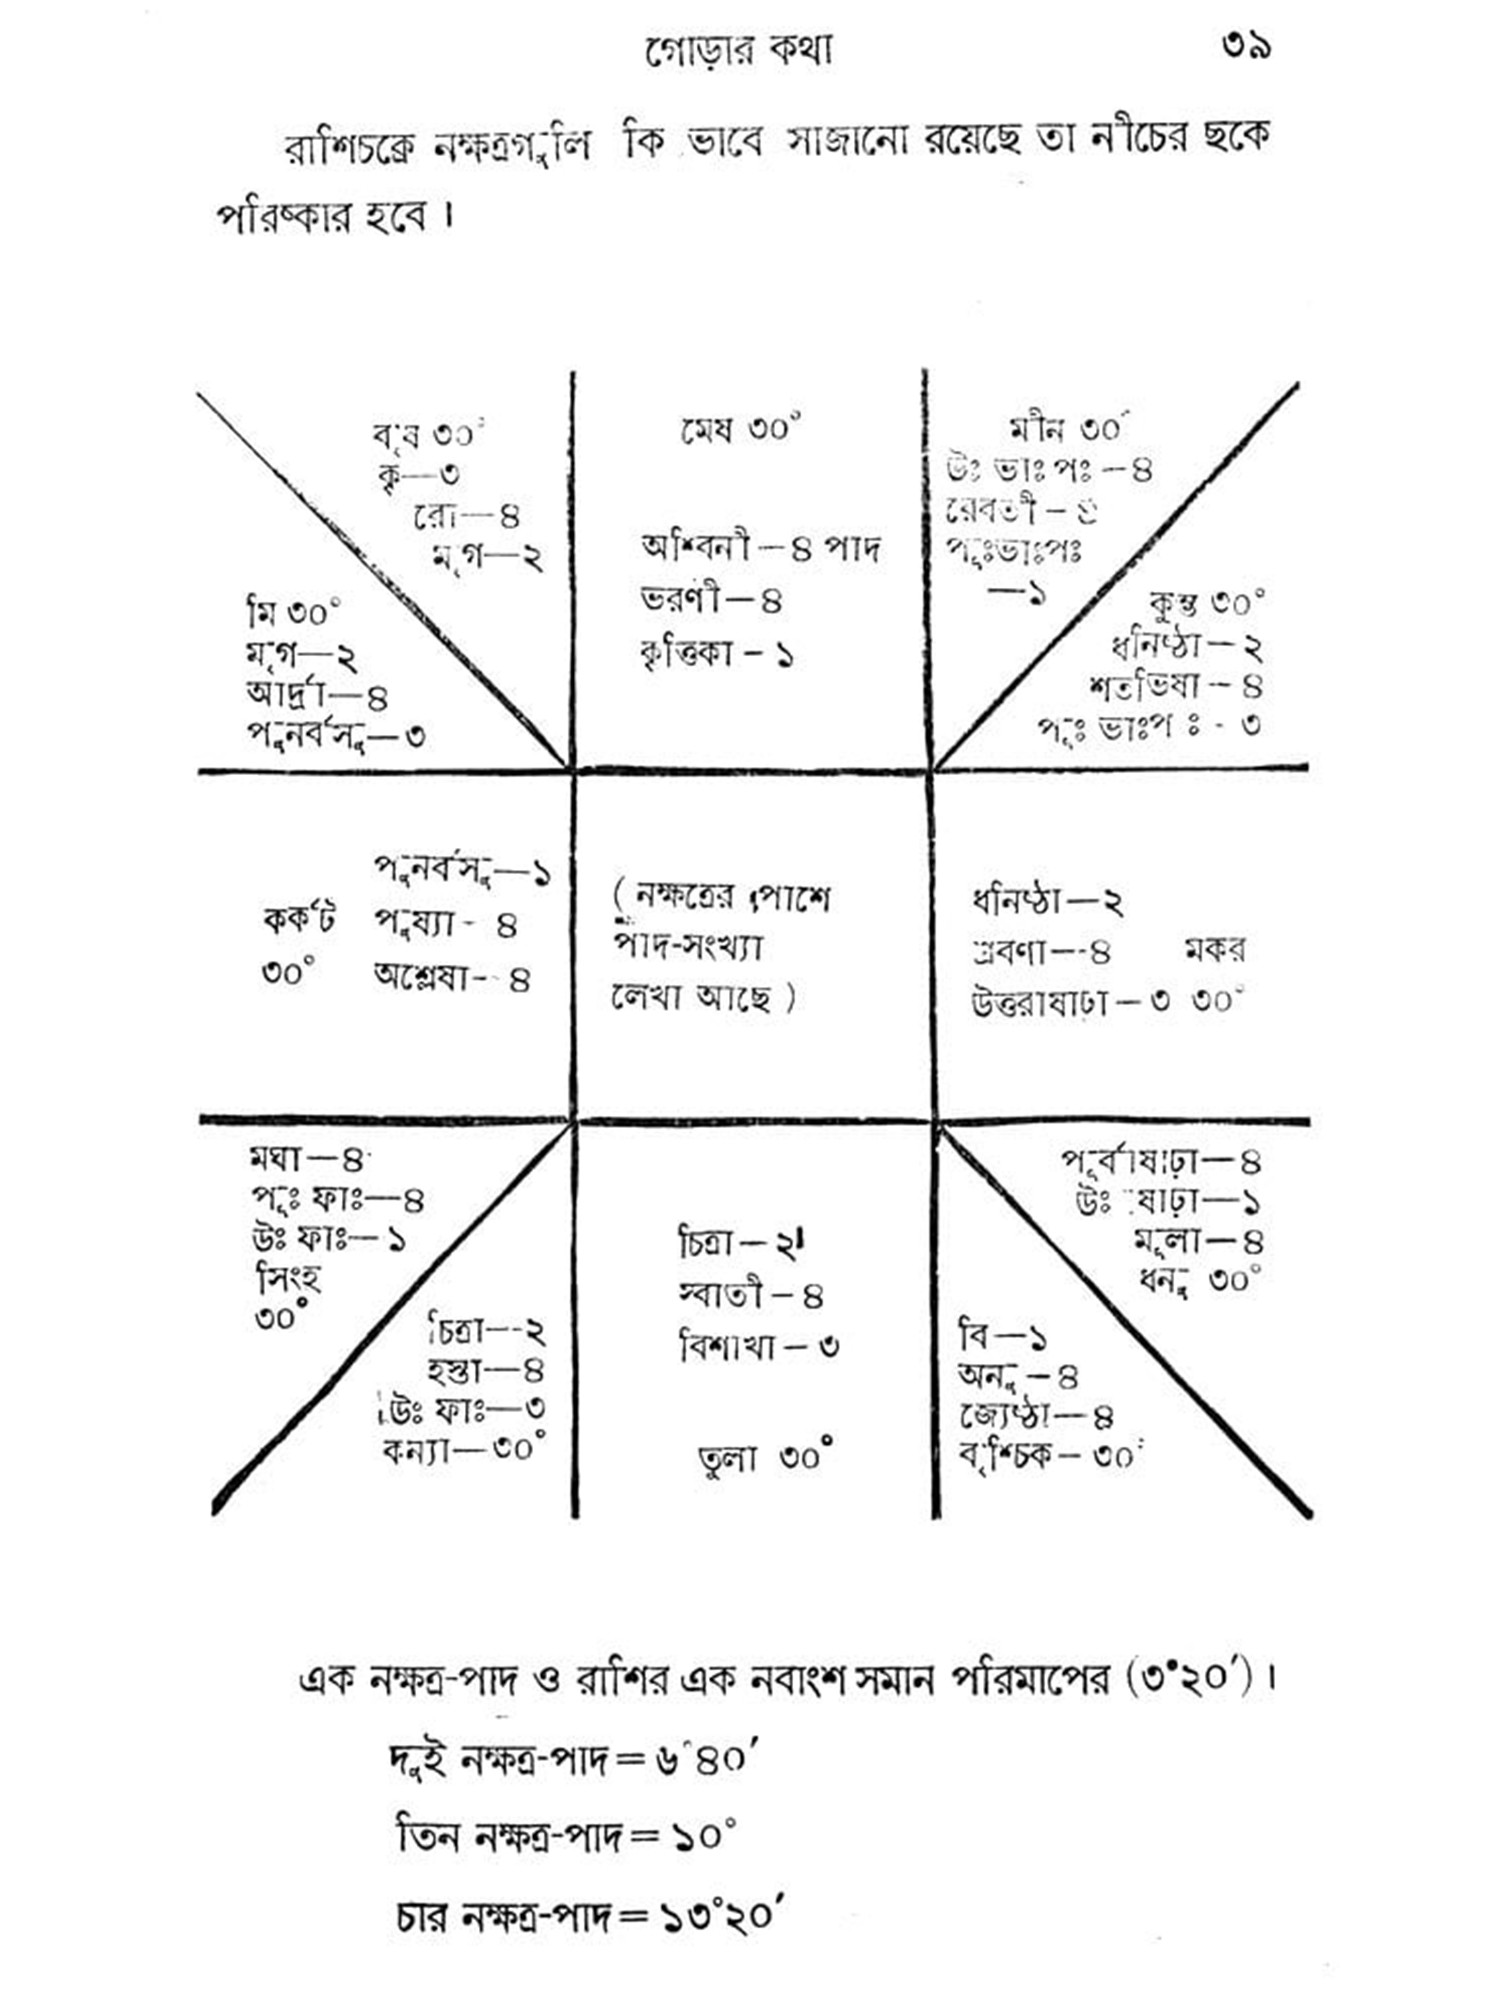 গোড়ার কথা ৩৯
রাশিচক্রে নক্ষত্রগুলি কি ভাবে সাজানো রয়েছে তা নীচের ছকে
পরিষ্কার হবে।
বৃষ ৩০°
কৃ—৩
রো—৪
মৃগ—২
মেষ ৩০°
অশ্বিনী—৪ পাদ
ভরণী—৪
কৃত্তিকা—১
মীন ৩০°
উঃ ভাঃ পঃ—৪
রেবতী—৪
পূঃভাঃপঃ
—১
মি ৩০°
মৃগ—২
আর্দ্রা—৪
পুনর্বসু—৩
কুম্ভ ৩০°
ধনিষ্ঠা—২
শতভিষা—৪
পূঃ ভাঃপঃ - ৩
পুনর্বসু—১
কর্কট পুষ্যা - ৪
৩০° অশ্লেষা-- ৪
( নক্ষত্রের পাশে
পাদ-সংখ্যা
লেখা আছে )
ধনিষ্ঠা—২
শ্রবণা—-৪ মকর
উত্তরাষাঢ়া—৩ ৩০°
মঘা—৪
পূঃ ফাঃ—৪
উঃ ফাঃ—১
সিংহ
৩০°
চিত্রা—-২
হস্তা—৪
উঃ ফাঃ—৩
কন্যা—৩০°
চিত্রা—২
স্বাতী—৪
বিশাখা—৩
তুলা ৩০°
পূর্বাষাঢ়া—৪
উঃ ষাঢ়া—১
মূলা—৪
ধনু ৩০°
বি—১
অনু—৪
জ্যেষ্ঠা—৪
বৃশ্চিক—৩০°
এক নক্ষত্র-পাদ ও রাশির এক নবাংশ সমান পরিমাপের (৩°২০′)।
দুই নক্ষত্র-পাদ = ৬°৪০′
তিন নক্ষত্র-পাদ = ১০°
চার নক্ষত্র-পাদ = ১৩°২০′